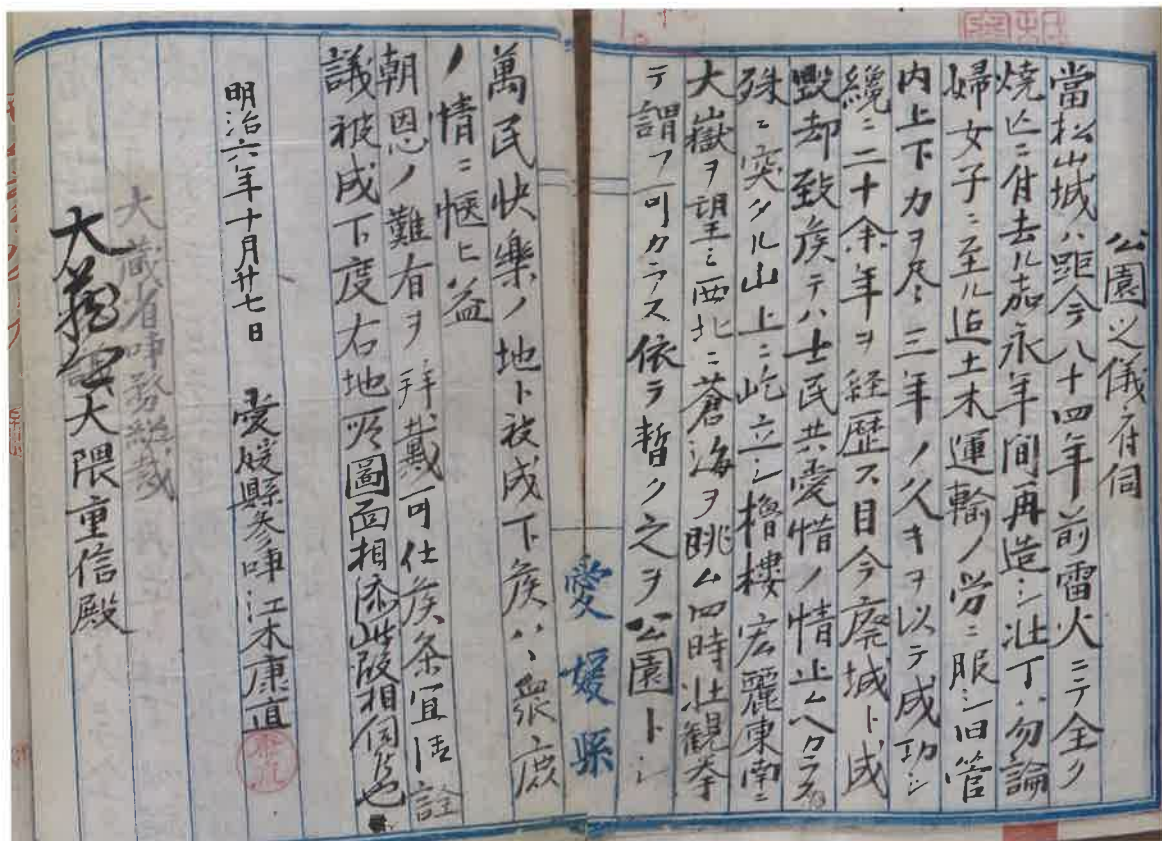 公園之儀ニ付伺
當松山城ハ距今八十四年前雷火ニテ全ク
燒亡ニ付去ル嘉永年間再造シ壮丁ハ勿論
婦女子ニ至ル迠土木運輸ノ労ニ服シ旧管
内上下力ヲ尽シ三年ノ久キヲ以テ成功シ
纔ニ二十余年ヲ経歴ス目今廃城ト成
毀却致候テハ士民共愛惜ノ情止ムヘカラス
殊ニ突タル山上ニ屹立シ櫓樓宏麗東南ニ
大嶽ヲ望ミ西北ニ蒼海ヲ眺ム四時壮観
テ謂フ可カラス依テ暫ク之ヲ公園トシ
愛媛縣
萬民快樂ノ地ト被成下候ハヽ衆庶
ノ情ニ愜ヒ益
朝恩ノ難有ヲ拜戴可仕候条宜御詮
議被成下度右地所圖面相添此段相伺候也
明治六年十月廿七日
愛媛縣参事江木康直
大藏省事務総裁
大隈重信殿